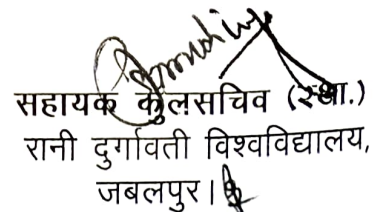 सहायक कुलसचिव (स्था.)
रानी दुर्गावती विश्वविद्यालय,
जबलपुर।